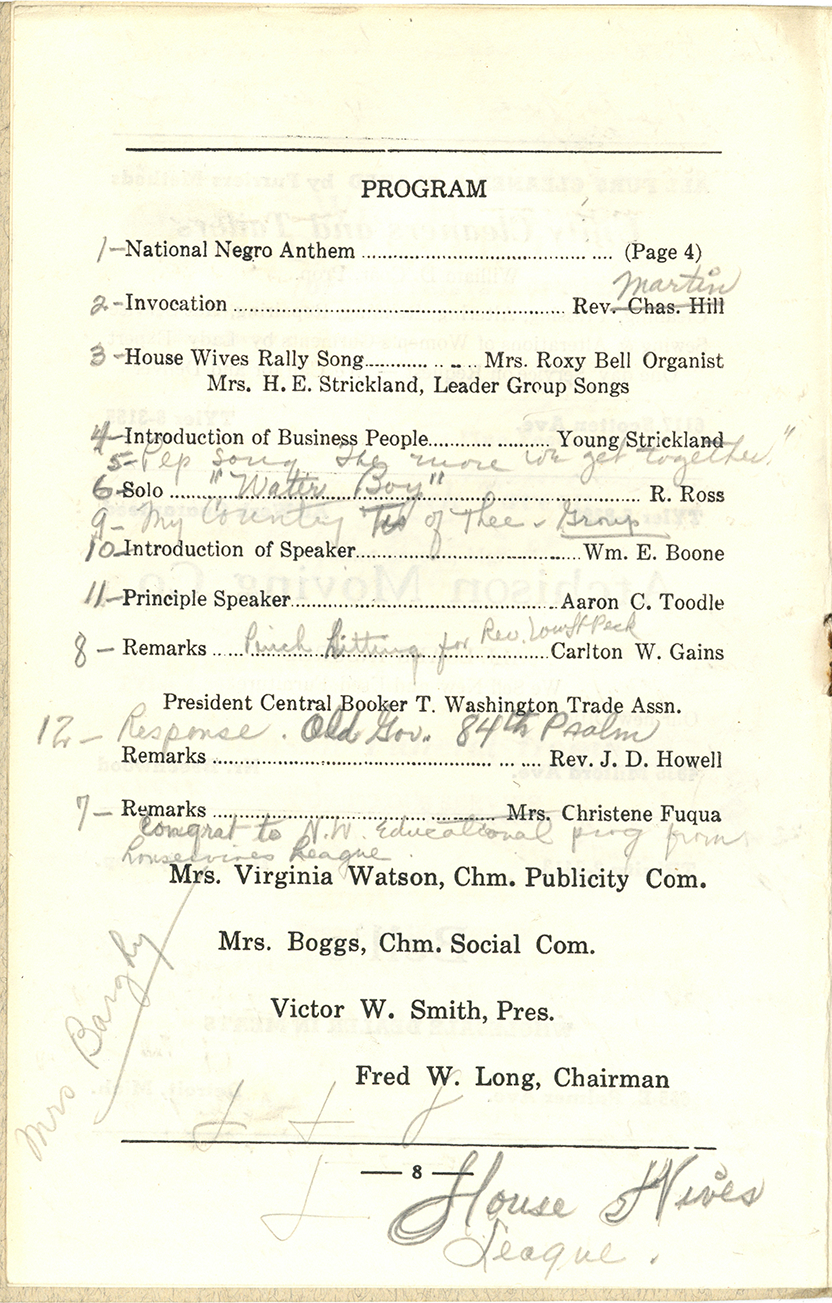 PROGRAM
1- National Negro Anthem ........ (Page 4)
Martin
2- Invocation ........ Rev. Chas. Hill
3- House Wives Rally Song ........ Mrs. Roxy Bell Organist
Mrs. H. E. Strickland, Leader Group Songs
4- Introduction of Business People ........ Young Strickland
5- Pep song "The more we get together."
6- Solo "Water Boy" ........ R. Ross
9- My Country Tis of Thee - Group
10- Introduction of Speaker ........ Wm. E. Boone
11- Principle Speaker ........ Aaron C. Toodle
Pinch hitting for Rev.
8 - Remarks ........ Carlton W. Gains
President Central Booker T. Washington Trade Assn.
12 - Response. Old Gov. 84th Psalm
Remarks ........ Rev. J. D. Howell
7- Remarks ........ Mrs. Christene Fuqua
Congrat to N.W. Educational prog from
housewives League.
Mrs. Virginia Watson, Chm. Publicity Com.
Mrs. Boggs, Chm. Social Com.
Mrs Bargby
Victor W. Smith, Pres.
Fred W. Long, Chairman
— 8 —
House Wives
League.